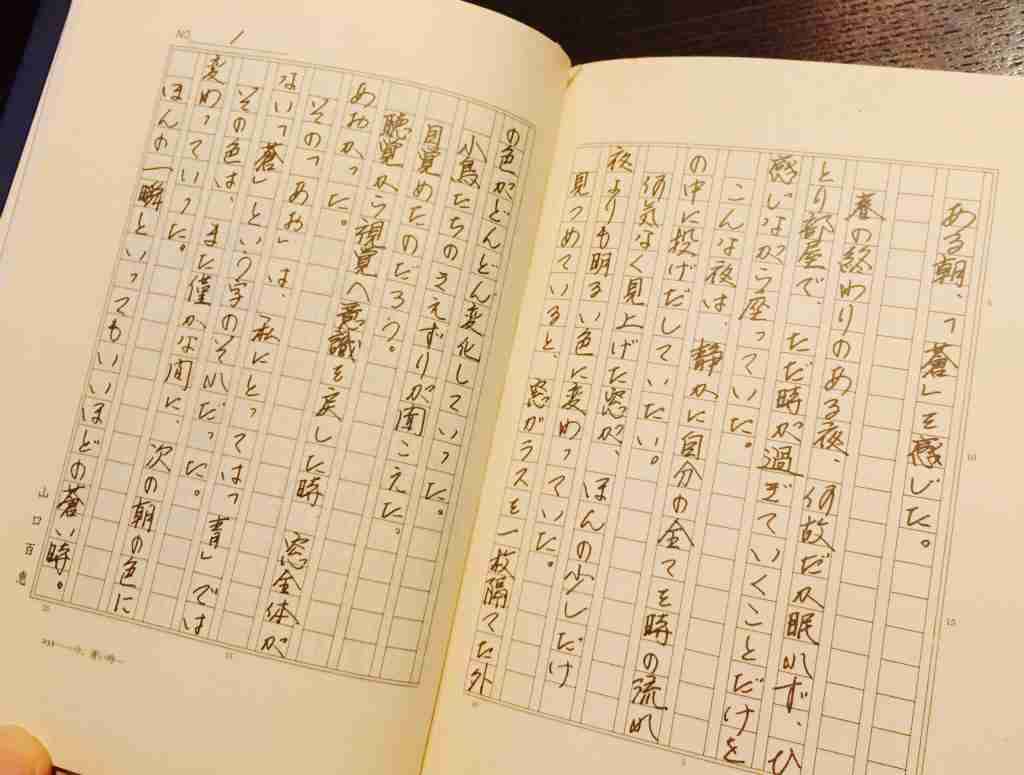 ある朝、「蒼」を感じた。
春の終わりのある夜、何故だか眠れず、ひ
とり部屋で、ただ時が過ぎていくことだけを
感じながら座っていた。
こんな夜は、静かに自分の全てを時の流れ
の中に投げだしていたい。
何気なく見上げた窓が、ほんの少しだけ
夜よりも明るい色に変わっていた。
見つめていると、窓ガラスを一枚隔てた外
の色がどんどん変化していった。
小鳥たちのさえずりが聞こえた。
目覚めたのだろう。
聴覚から視覚へ意識を戻した時 窓全体が
あおかった。
その「あお」は、私にとっては「青」では
ない「蒼」という字のそれだった。
その色は、また僅かな間に、次の朝の色に
変わっていった。
ほんの一瞬といってもいいほどの蒼い時。
山口百恵
NO. 1
10
15
今、蒼い時